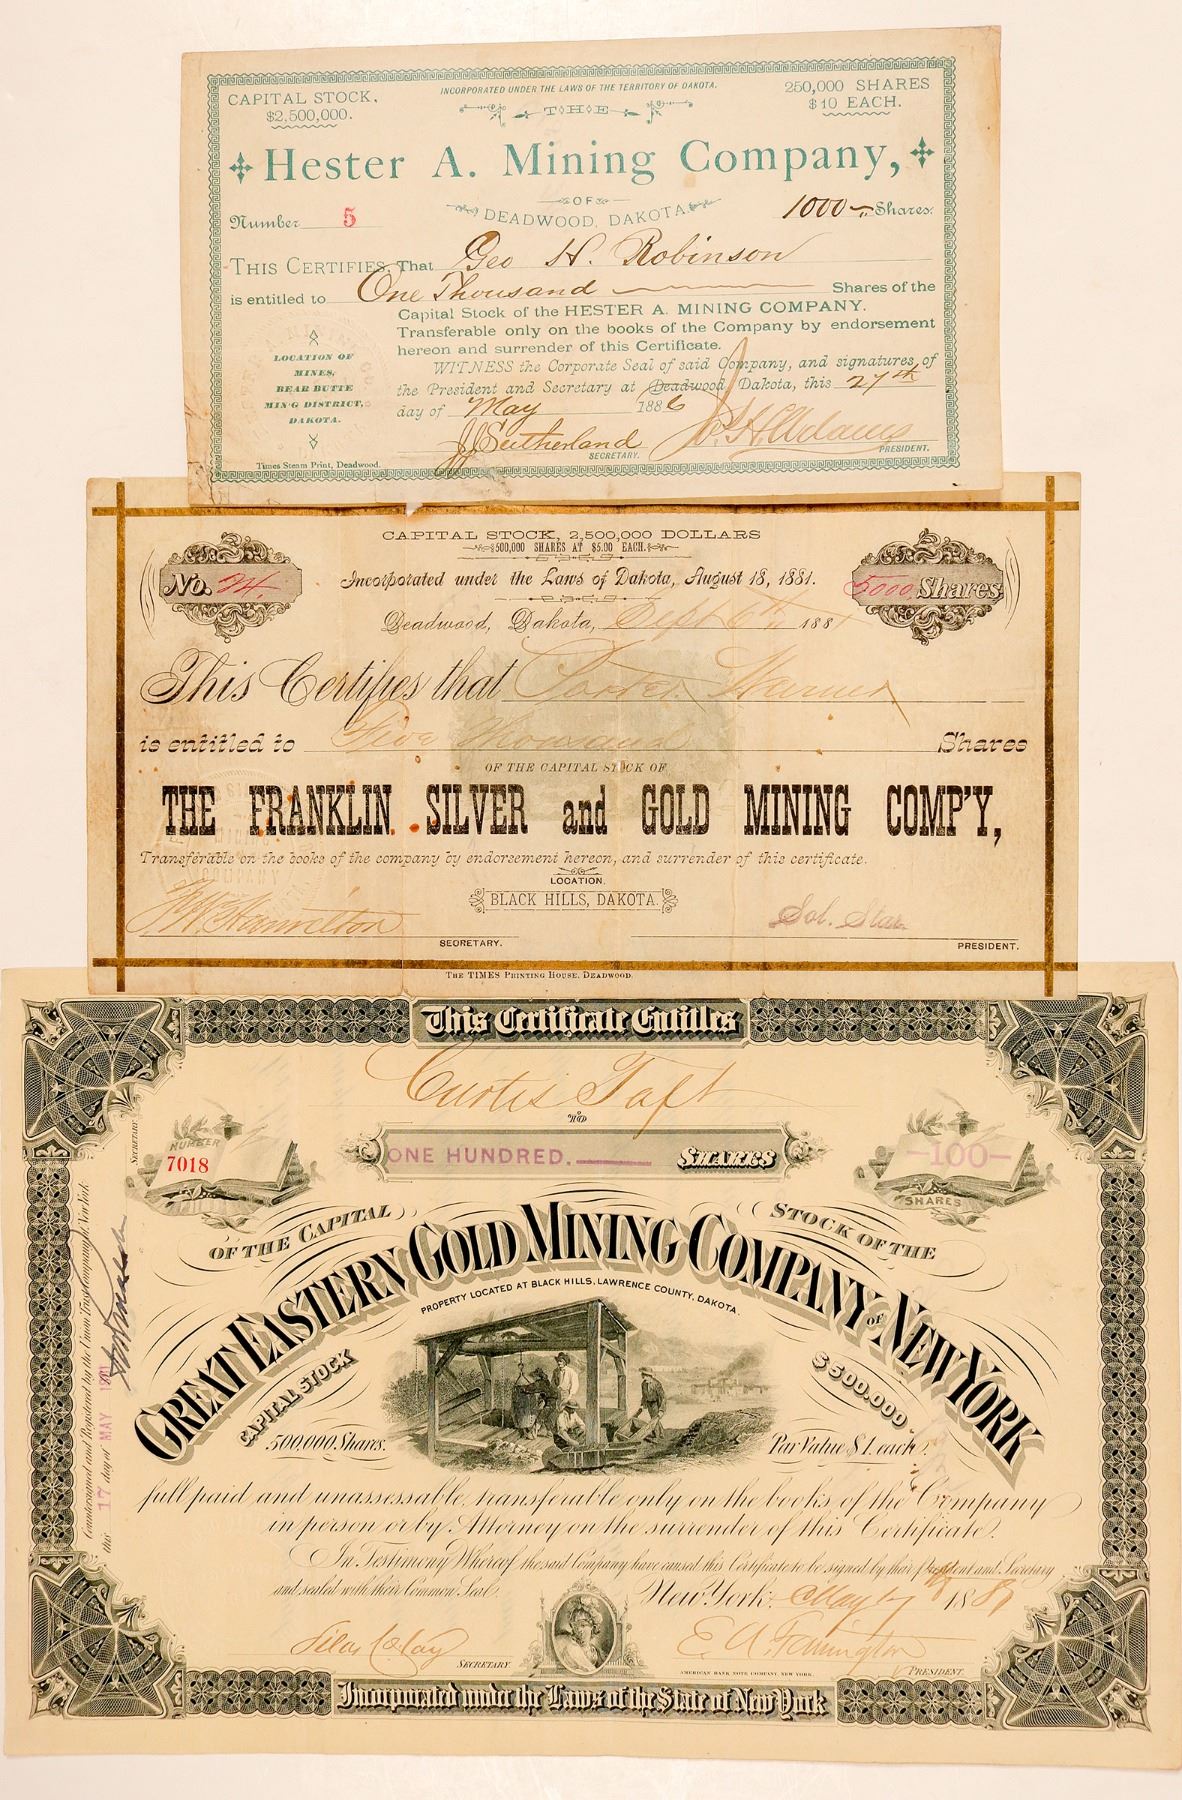 CAPITAL STOCK,
$2,500,000.
INCORPORATED UNDER THE LAWS OF THE TERRITORY OF DAKOTA.
250,000 SHARES
$10 EACH.
THE
Hester A. Mining Company,
OF
DEADWOOD, DAKOTA.
Number 5
1000 Shares.
THIS CERTIFIES, That Geo H. Robinson
is entitled to One Thousand Shares of the
Capital Stock of the HESTER A. MINING COMPANY.
Transferable only on the books of the Company by endorsement
hereon and surrender of this Certificate.
WITNESS the Corporate Seal of said Company, and signatures of
the President and Secretary at Deadwood, Dakota, this 27th
day of May 1886
LOCATION OF
MINES,
BEAR BUTTE
MIN'G DISTRICT,
DAKOTA.
J Sutherland
SECRETARY.
PRESIDENT.
Times Steam Print, Deadwood.
CAPITAL STOCK, 2,500,000 DOLLARS
500,000 SHARES AT $5.00 EACH.
No. 24.
Incorporated under the Laws of Dakota, August 18, 1881.
5000 Shares
Deadwood, Dakota, Sept 6th 1881
This Certifies that Porter Warner
is entitled to Five Thousand Shares
OF THE CAPITAL STOCK OF
THE FRANKLIN SILVER and GOLD MINING COMP'Y,
Transferable on the books of the company by endorsement hereon, and surrender of this certificate.
LOCATION.
BLACK HILLS, DAKOTA.
Hamilton
SECRETARY.
Sol. Star
PRESIDENT.
THE TIMES PRINTING HOUSE, DEADWOOD.
This Certificate Entitles
Curtis Taft
TO
NUMBER
7018
ONE HUNDRED. SHARES
-100-
SHARES
OF THE CAPITAL STOCK OF THE
GREAT EASTERN GOLD MINING COMPANY OF NEW YORK
PROPERTY LOCATED AT BLACK HILLS, LAWRENCE COUNTY, DAKOTA.
CAPITAL STOCK $500,000
500,000 Shares. Par Value $1. each.
full paid and unassessable, transferable only on the books of the Company
in person or by Attorney on the surrender of this Certificate.
In Testimony Whereof, the said Company have caused this Certificate to be signed by their President and Secretary
and sealed with their Common Seal.
New York, May 17th 1881
SECRETARY.
E. A.
PRESIDENT.
AMERICAN BANK NOTE COMPANY, NEW YORK.
Incorporated under the Laws of the State of New York
Countersigned and Registered by the Union Trust Company of New York
this 17 day of MAY 1881
SECRETARY.